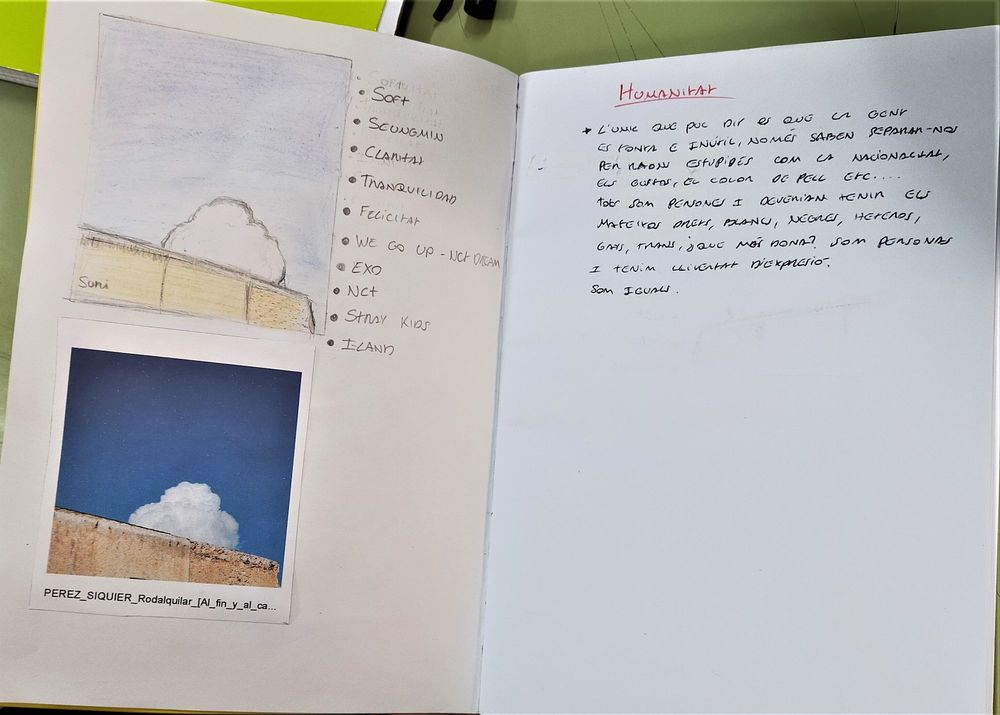 Suni
• Soft
• Seungmin
• Claritat
• Tranquilidad
• Felicitat
• We go up - NCT Dream
• EXO
• NCT
• Stray Kids
• Iland
PEREZ_SIQUIER_Rodalquilar_[Al_fin_y_al_ca...
HUMANITAT
L'unic que puc dir es que la gent
es tonta e inútil, només saben separar-nos
per raons estupides com la nacionalitat,
els gustos, el color de pell etc....
tots som persones i deverian tenir els
mateixos drets, blancs, negres, heteros,
gays, trans, ¿que més dona? som personas
i tenim llivertat d'expresió.
som iguals.